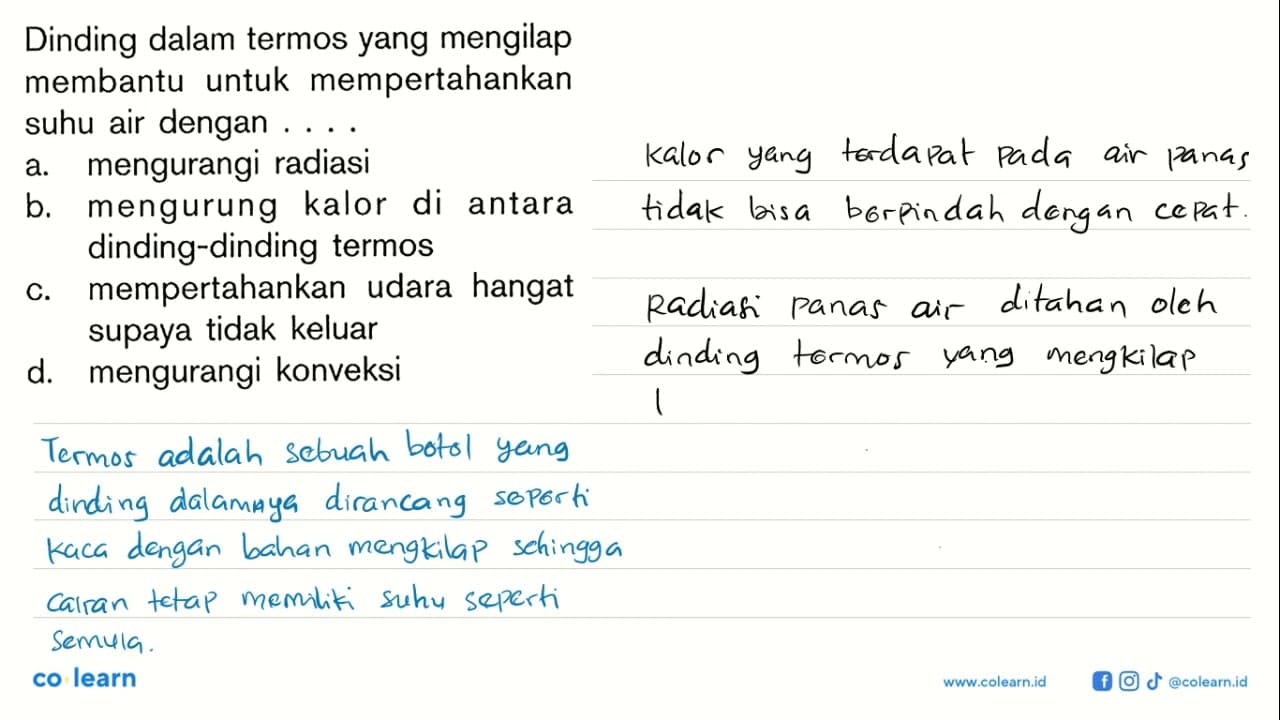 Dinding dalam termos yang mengilap
membantu untuk mempertahankan
suhu air dengan . . . .
a. mengurangi radiasi
b. mengurung kalor di antara
dinding-dinding termos
c. mempertahankan udara hangat
supaya tidak keluar
d. mengurangi konveksi
Kalor yang terdapat pada air panas
tidak bisa berpindah dengan cepat.
Radiasi panas air ditahan oleh
dinding termos yang mengkilap
Termos adalah sebuah botol yang
dinding dalamnya dirancang seperti
kaca dengan bahan mengkilap sehingga
cairan tetap memiliki suhu seperti
semula.
co learn
www.colearn.id
@colearn.id